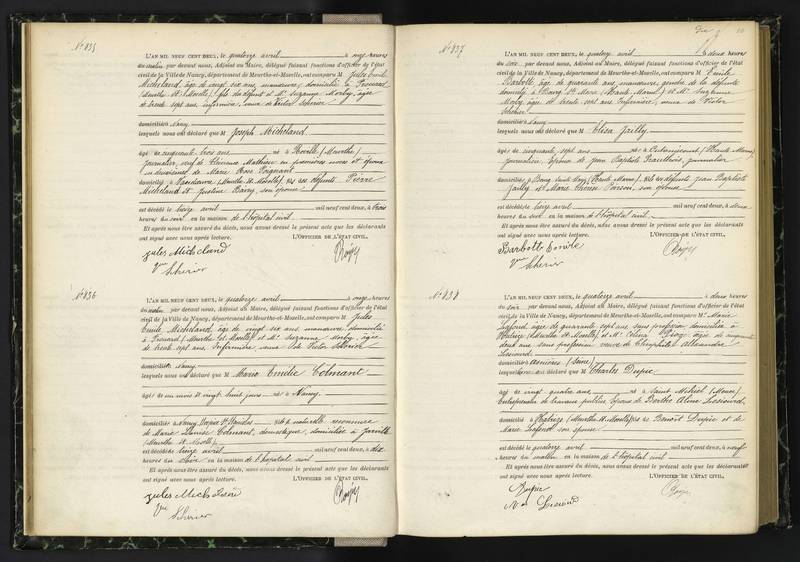 N° 835
L'AN MIL NEUF CENT DEUX, le quatorze avril à onze heures
du matin par devant nous, Adjoint au Maire, délégué faisant fonctions d'officier de l'état
civil de la Ville de Nancy, département de Meurthe-et-Moselle, ont comparu M Jules Emile
Micheland, âgé de vingt six ans, manœuvre, domicilié à Frouard
(Meurthe et Moselle), fils du défunt et Me Suzanne Morby, âgée
de trente sept ans, infirmière, veuve de Victor Scherier
domiciliés à Nancy
lesquels nous ont déclaré que M Joseph Micheland
âgé de cinquante trois ans né à Roville (Meurthe)
journalier, veuf de Mathieu en premières noces et époux
en deuxièmes de Marie Rose Poignant
domicilié à (Meurthe et Moselle), fils des défunts Pierre
Micheland et Justine son épouse
est décédé le treize avril mil neuf cent deux, à trois
heures du soir en la maison de l'hôpital civil
Et après nous être assuré du décès, nous avons dressé le présent acte que les déclarants
ont signé avec nous après lecture. L'OFFICIER DE L'ÉTAT CIVIL,
jules Micheland
Vve Scherier
N° 836
L'AN MIL NEUF CENT DEUX, le quatorze avril à onze heures
du matin par devant nous, Adjoint au Maire, délégué faisant fonctions d'officier de l'état
civil de la Ville de Nancy, département de Meurthe-et-Moselle, ont comparu M Jules
Emile Micheland, âgé de vingt six ans, manœuvre domicilié
à Frouard (Meurthe et Moselle) et Me Suzanne Morby, âgée
de trente sept ans, infirmière, veuve de Victor Scherier
domiciliés à Nancy
lesquels nous ont déclaré que M Marie Emélie Colmant
âgée de un mois et vingt huit jours née à Nancy
domiciliée à Nancy, fille naturelle reconnue
de Marie Louise Colmant, domestique, domiciliée à Jarville
(Meurthe et Moselle)
est décédée le treize avril mil neuf cent deux, à dix
heures du soir en la maison de l'hôpital civil
Et après nous être assuré du décès, nous avons dressé le présent acte que les déclarants
ont signé avec nous après lecture. L'OFFICIER DE L'ÉTAT CIVIL,
jules Micheland
Vve Scherier
N° 837
L'AN MIL NEUF CENT DEUX, le quatorze avril à deux heures
du soir par devant nous, Adjoint au Maire, délégué faisant fonctions d'officier de l'état
civil de la Ville de Nancy, département de Meurthe-et-Moselle, ont comparu M Emile
Barbotte âgé de quarante ans manœuvre, gendre de la défunte
domicilié à Bourg Ste Marie (Haute Marne) et Me Suzanne
Morby âgée de trente sept ans infirmière, veuve de Victor
Scherier
domiciliés à Nancy
lesquels nous ont déclaré que M Elisa Jailly
âgée de cinquante sept ans née à (Haute Marne)
journalière, épouse de Jean Baptiste journalier
domiciliée à Bourg Sainte Marie (Haute Marne), fille des défunts Jean Baptiste
Jailly et Marie Thérèse Poirson, son épouse
est décédée le treize avril mil neuf cent deux, à deux
heures du soir en la maison de l'hôpital civil
Et après nous être assuré du décès, nous avons dressé le présent acte que les déclarants
ont signé avec nous après lecture. L'OFFICIER DE L'ÉTAT CIVIL,
Barbotte Emile
Vve Scherier
N° 838
L'AN MIL NEUF CENT DEUX, le quatorze avril à deux heures
du soir par devant nous, Adjoint au Maire, délégué faisant fonctions d'officier de l'état
civil de la Ville de Nancy, département de Meurthe-et-Moselle, ont comparu Me Marie
Lafond, âgée de quarante sept ans sans profession domiciliée à
(Meurthe et Moselle) et Me Celina âgée de cinquante
deux ans sans profession, veuve de Alexandre
domiciliés à Asnières (Seine)
lesquelles nous ont déclaré que M Charles Dupic
âgé de vingt quatre ans né à Saint Mihiel (Meuse)
Entrepreneur de travaux publics, époux de Berthe Aline
domicilié à (Meurthe et Moselle) fils de Benoît Dupic et de
Marie Lafond son épouse
est décédé le quatorze avril mil neuf cent deux, à neuf
heures du matin en la maison de l'hôpital civil
Et après nous être assuré du décès, nous avons dressé le présent acte que les déclarants
ont signé avec nous après lecture. L'OFFICIER DE L'ÉTAT CIVIL,
Dupic